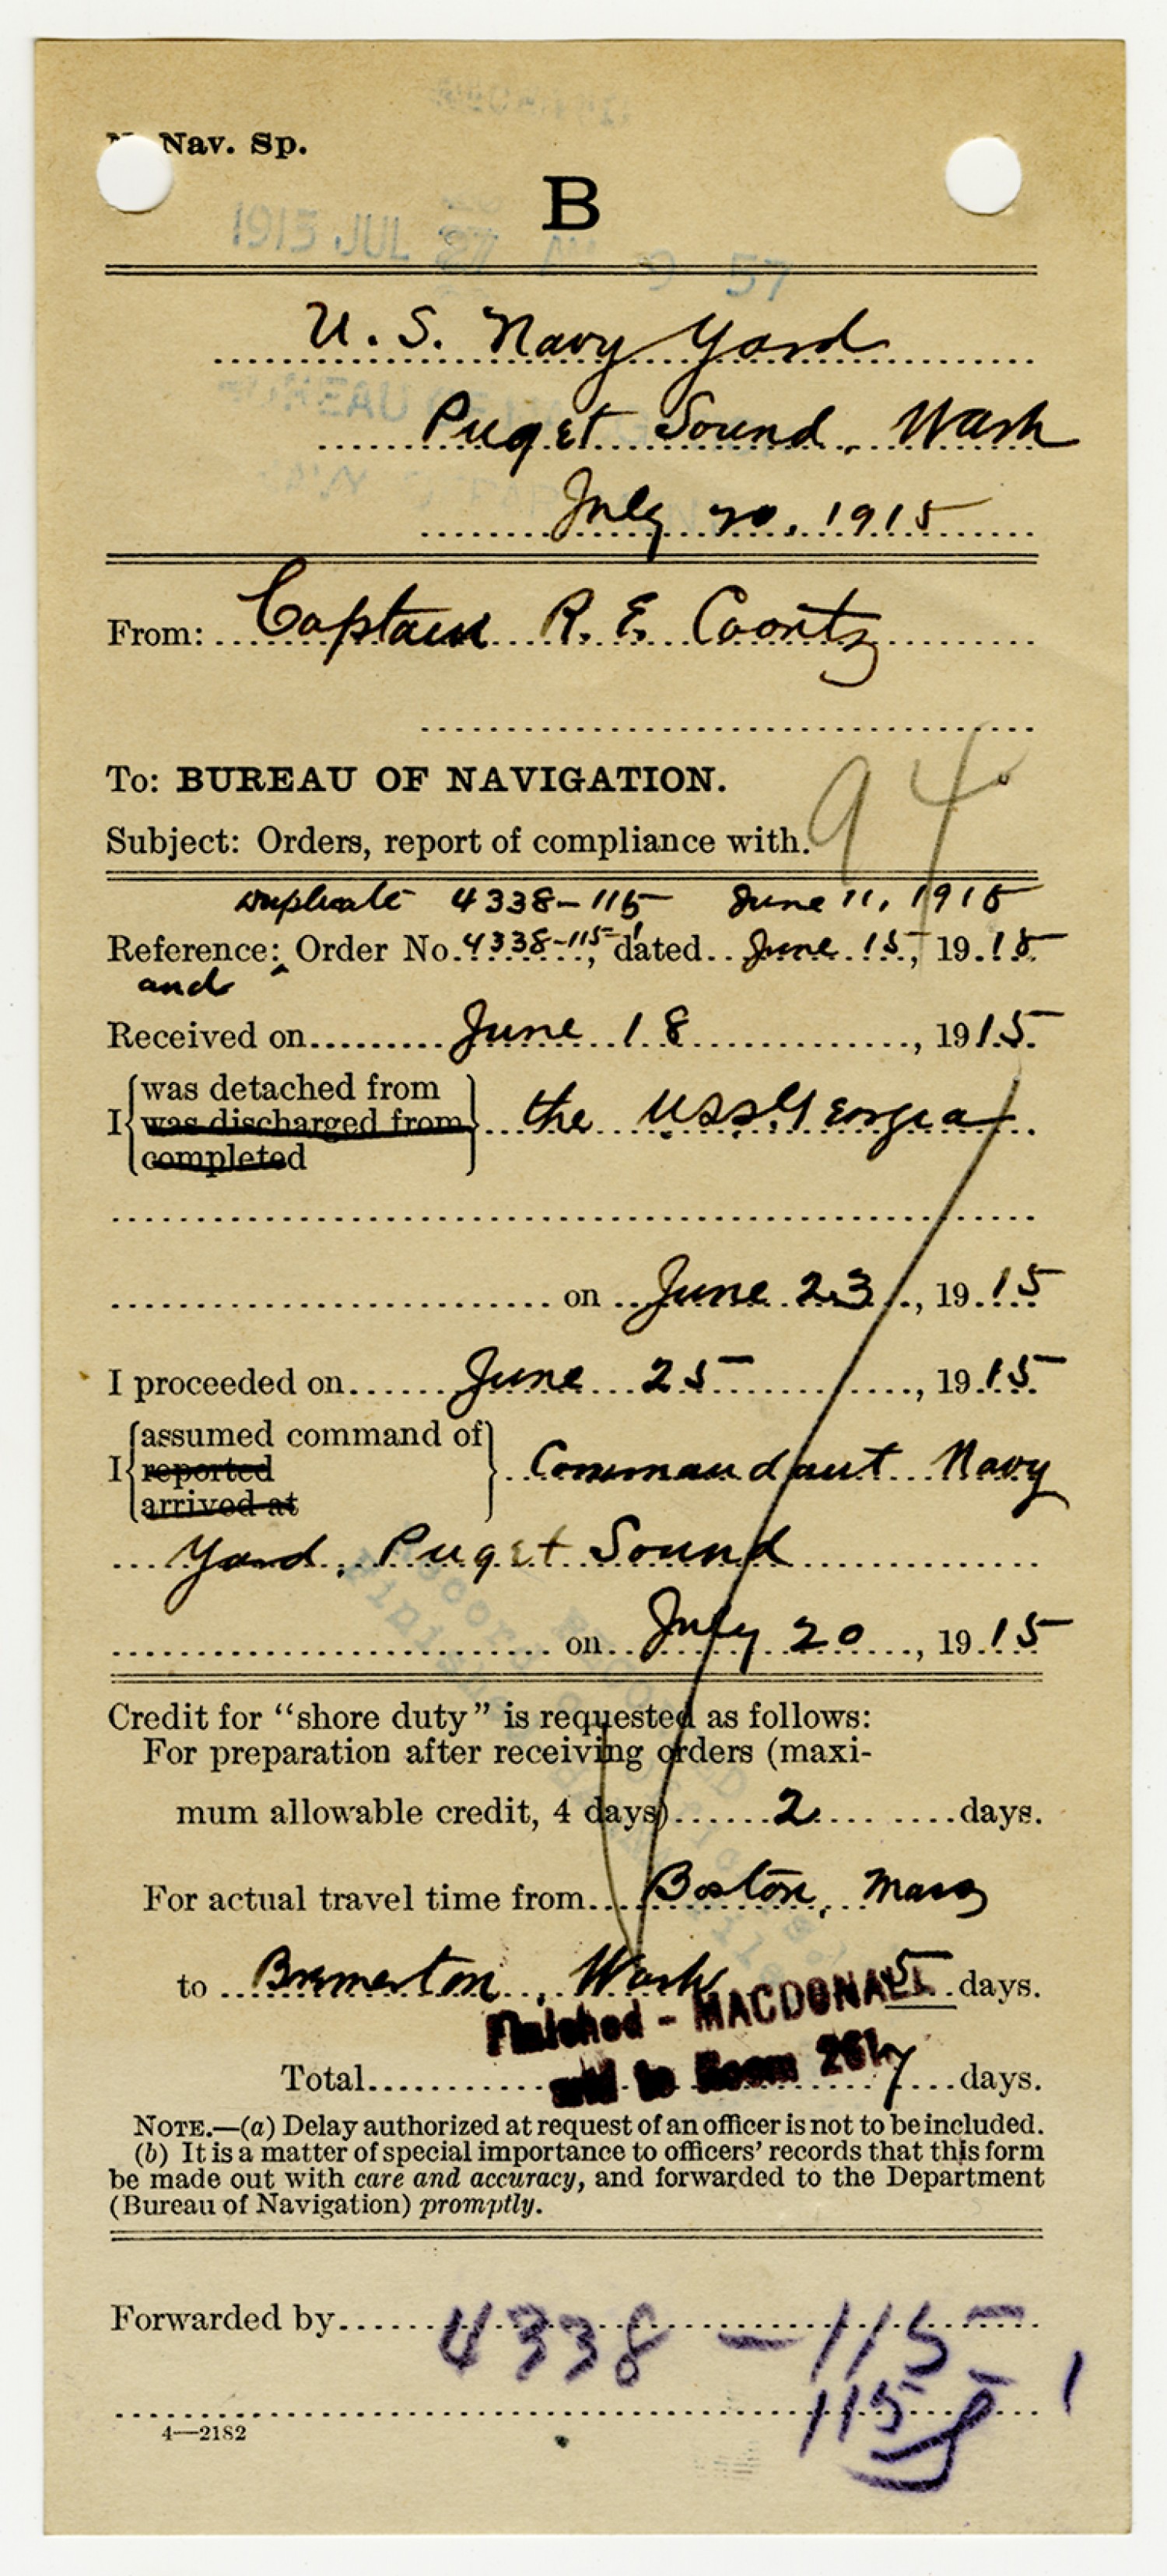 Nav. Sp.
B
1915 JUL 27 AM 9 57
U. S. Navy Yard
BUREAU OF
Puget Sound, Wash
NAVY DEPARTMENT
July 20, 1915
From: Captain R. E. Coontz
To: BUREAU OF NAVIGATION.
94
Subject: Orders, report of compliance with.
Duplicate 4338-115 June 11, 1915
Reference: Order No. 4338-115, dated June 15, 1915
and
Received on June 18, 1915
was detached from
I was discharged from the USS. Georgia
completed
on June 23, 1915
I proceeded on June 25, 1915
assumed command of
I reported Commandant Navy
arrived at
Yard, Puget Sound
on July 20, 1915
Credit for "shore duty" is requested as follows:
For preparation after receiving orders (maxi-
mum allowable credit, 4 days) 2 days.
For actual travel time from Boston, Mass
to Bremerton, Wash 5 days.
Finished - MACDONALD
Total 7 days.
and to Room 261
NOTE.—(a) Delay authorized at request of an officer is not to be included.
(b) It is a matter of special importance to officers' records that this form
be made out with care and accuracy, and forwarded to the Department
(Bureau of Navigation) promptly.
Forwarded by
4338-115
115
4—2182